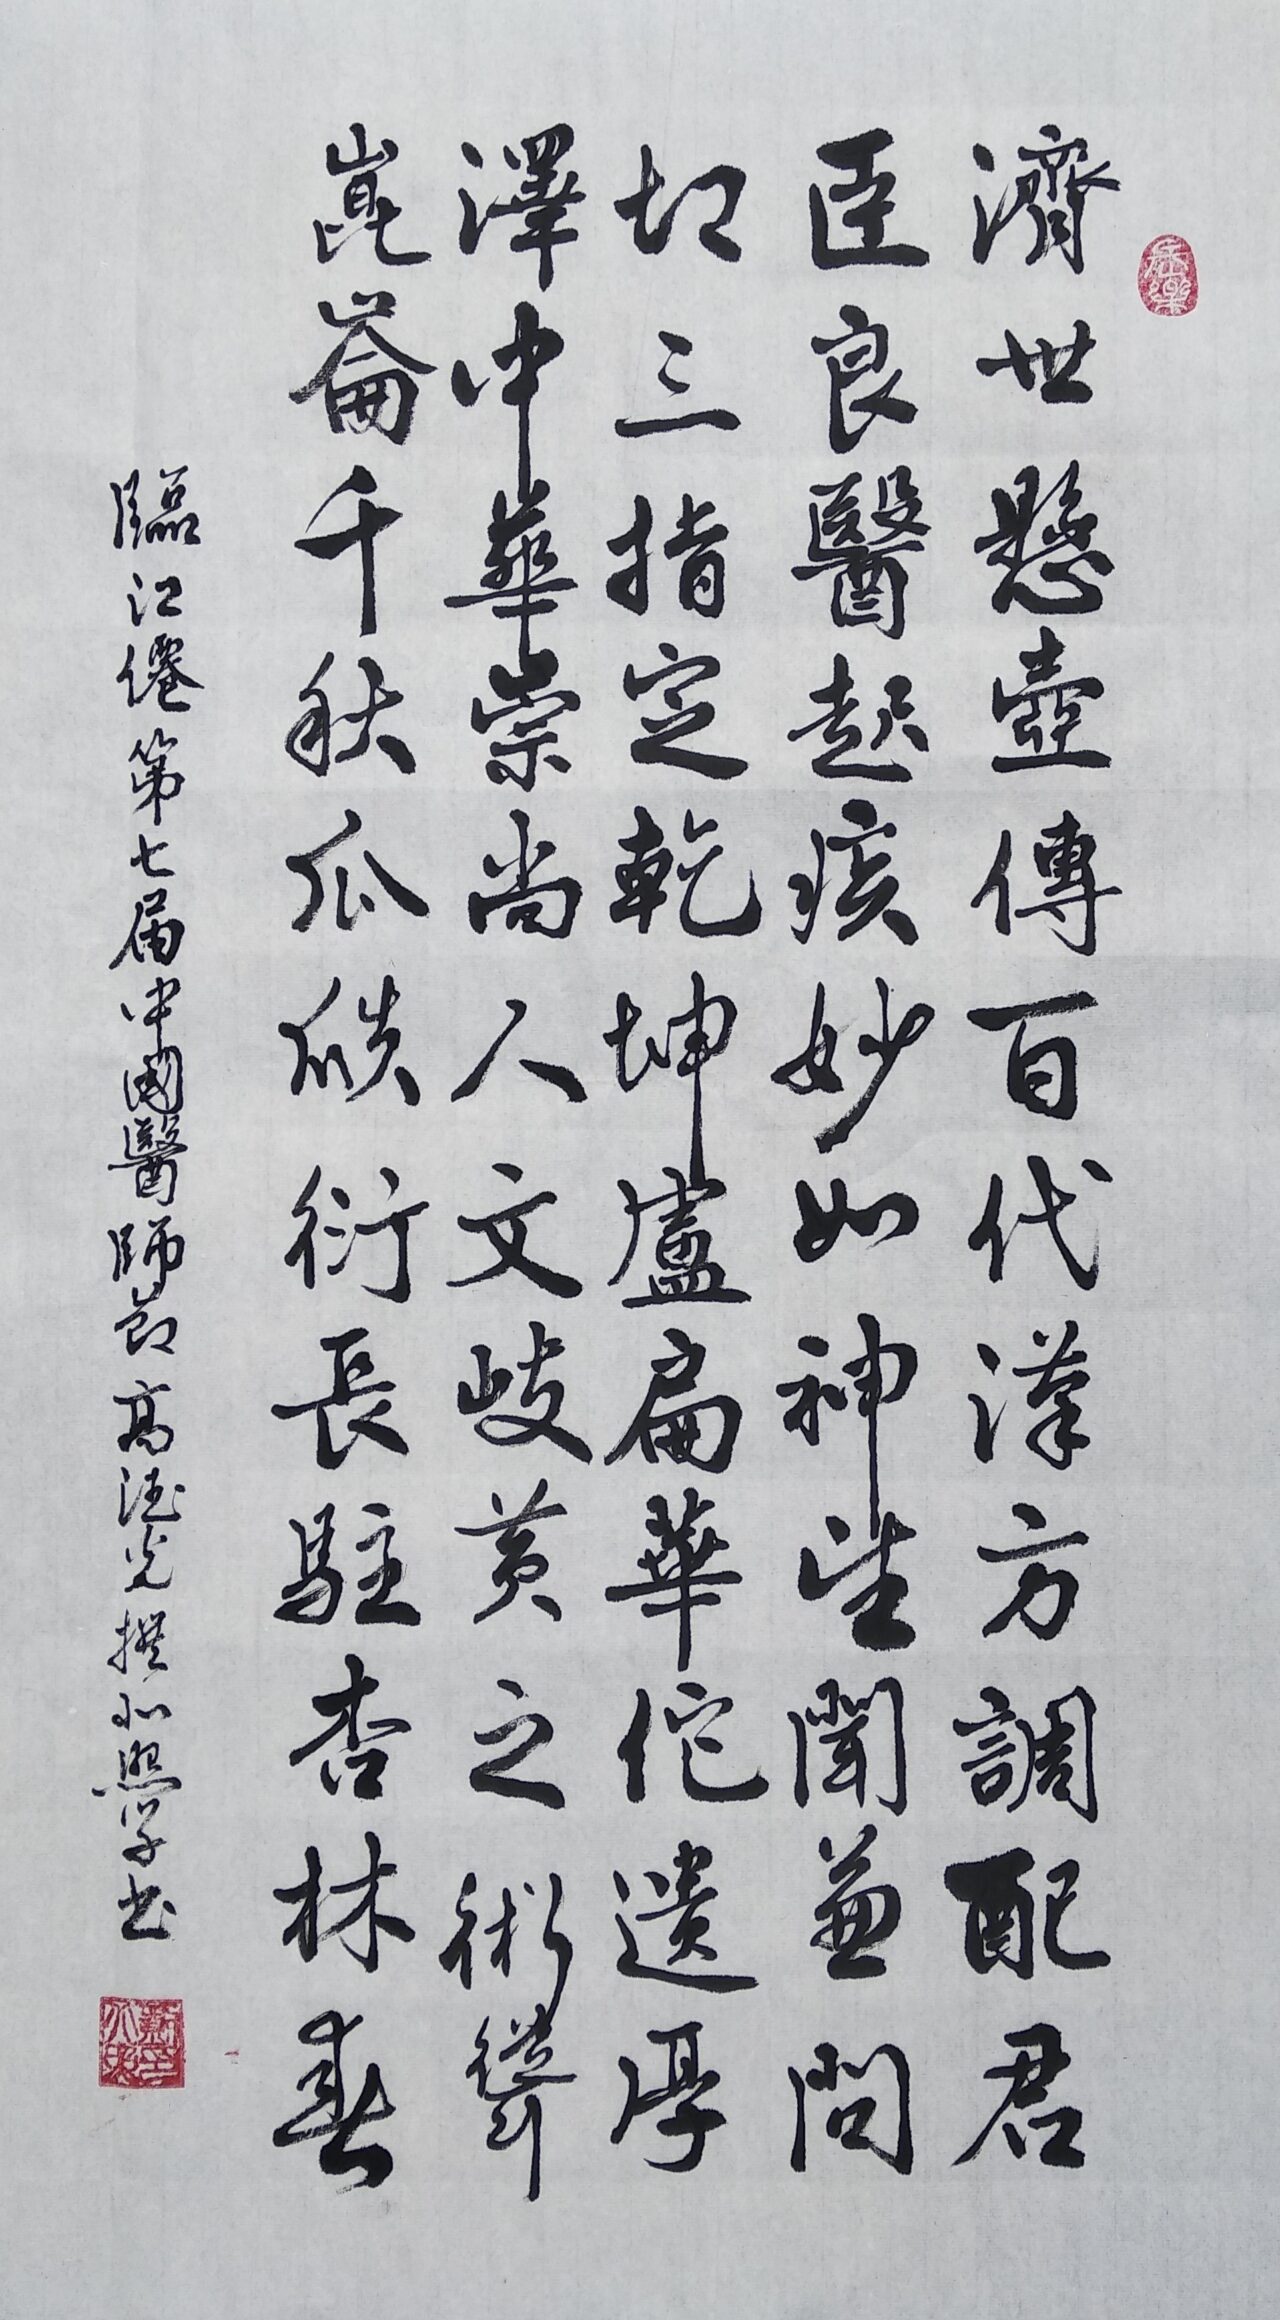 濟世懸壺傳百代漢方調配君
臣良醫起疾妙如神望聞兼問
切三指定乾坤盧扁華佗遺厚
澤中華崇尚人文岐黄之術聳
崑崙千秋瓜瓞衍長駐杏林春
臨江僊第七届中國醫師節高德光撰 學書